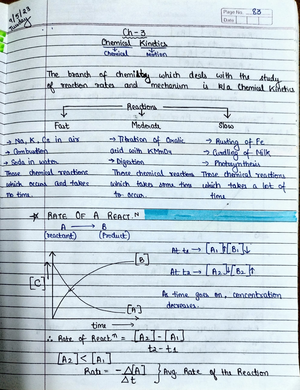 Page No. 83
Date
9/5/23
Tuesday
Ch-3
Chemical Kinetics
Chemical motion
The branch of chemistry which deals with the study
of reaction rates and mechanism is k/a Chemical Kinetics
Reactions
Fast Moderate Slow
→ Na, K, Cs in air → Titration of Oxalic → Rusting of Fe
→ Combustion acid with KMnO4 → Curdling of Milk
→ Soda in water → Digestion → Photosynthesis
Those chemical reactions Those chemical reactions Those chemical reactions
which occurs and takes which takes some time which takes a lot of
no time. to occur. time
* RATE OF A REACT.N
A → B
(reactant) (Product)
[C]
[B]
[A]
time →
At t1 → [A1]↑[B1]↓
At t2 → [A2]↓[B2]↑
As time goes on, concentration
decreases.
∴ Rate of React.n = [A2] - [A1]
t2 - t1
[A2] < [A1]
Rate = -Δ[A] } Avg. Rate of the Reaction
Δt